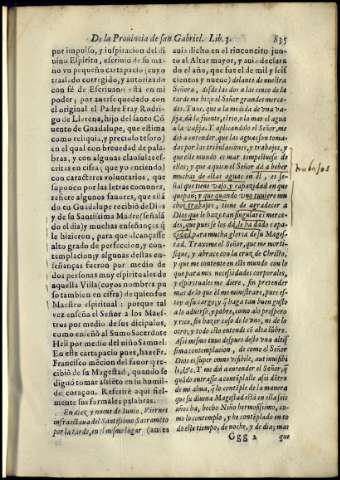 De la Prouincia de san Gabriel. Lib. 3.
835
por impulso, y inspiracion del di
uino Espiritu, escriuio de su ma
no vn pequeño cartapacio (cuyo
traslado corregido, y autorizado
con fè de Escriuano està en mi
poder, por auerse quedado con
el original el Padre Fray Rodrigo
de Llerena, hijo del santo Có
uento de Guadalupe, que estima
como reliquia, y precia tesoro)
en el qual con breuedad de pala-
bras, y con algunas clausulas es-
critas en cifra; que yo entiendo)
con caracteres voluntarios, que
suponen por las letras comunes,
refiere algunos fauores, que allà
en su Guadalupe recibiò de Dios
y de su Santissima Madre, señalá
do el dia) y muchas enseñanças q̃
le hizieron, para que alcançasse
alto grado de perfeccion, y con-
templacion; y algunas destas en-
señanças fueron por medio de
dos personas muy espirituales de
aquella Villa (cuyos nombres pu
so tambien en cifra) de quien fue
Maestro espiritual: porque tal
vez enseña el Señor a los Maes-
tros por medio de sus dicipulos,
como enseñò al Sumo Sacerdote
Heli por medio del niño Samuel.
En este cartapacio pues, hase Fr.
Francisco mēcion del fauor q̃ re-
cibiò de su Magestad, quando se
dignò tomar assiento en su humil-
de coraçon. Referirè aqui fiel-
mente sus formales palabras.
En diez y nueue de Iunio, Viernes
infraoctaua del Santissimo Sacramēto
por la tarde, en el mismo lugar (antes
auia dicho en el rinconcito jun-
to el Altar mayor, y auia dicho el
año de que, que fue el de mil y seis
cientos y nueue) delante de nuestra
Señora, desde las dos a las cinco de la
tarde me hizo el Señor grandes merce-
des. Tuue, que a la medida de vna va-
sija, dà la fuente, el rio, ò la mar el agua
a la vasija. Y aplicandolo el Señor, me
diò a entender, que las aguas son toma-
das por las tribulaciones, y trabajos, y
que este mundo es mar tempestuoso de
ellas; y que a quien el Señor dà a beber
muchas de estas aguas en èl, es se-
ñal que tiene vaso, y capazidad en que
quepan; y que quando vno tuuiere mu
chos trabajos, tiene de agradecer a
Dios que le haze tan singulares merce-
des, que pues se los dà, le ha dado capa-
zidad para mucha gloria de su Mages-
tad. Traxome el Señor, que me morti-
fique, y abrace con la cruz de Christo,
y que me contente en este mundo con lo
que para mis necessidades corporales,
y espirituales me diere, sin pretender
mas de lo que èl me ministrare, pues es-
toy a su cargo; y q̃ haga tan buen gusto
a lo aduerso, y pobre, como a lo prospero
y rico, sin hazer caso de lo vno, ni de lo
otro, y todo esto entendi cō alta lumbre.
Assi mesmo tuue despues desto vna altis-
sima contemplacion, de como el Señor
Dios es super omne visibile, aut inuisibi
le, &c. Y me diò a entender el Señor, q̃
quādo quisiesse a contēplasse assi dētro
de mi alma, q̃ lo contēple de la manera
que su diuina Magestad està en ella seis
años ha, hecho Niño hermosissimo, co-
mo lo contemplo, y he contemplado en to
do este tiempo, de noche, y de dia; mas
trabajos
Ggg 2
que